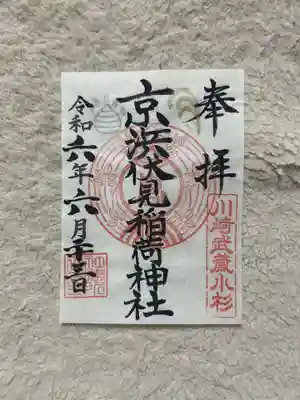 奉拝
川崎武蔵小杉
京浜伏見稲荷神社
令和六年六月二十三日